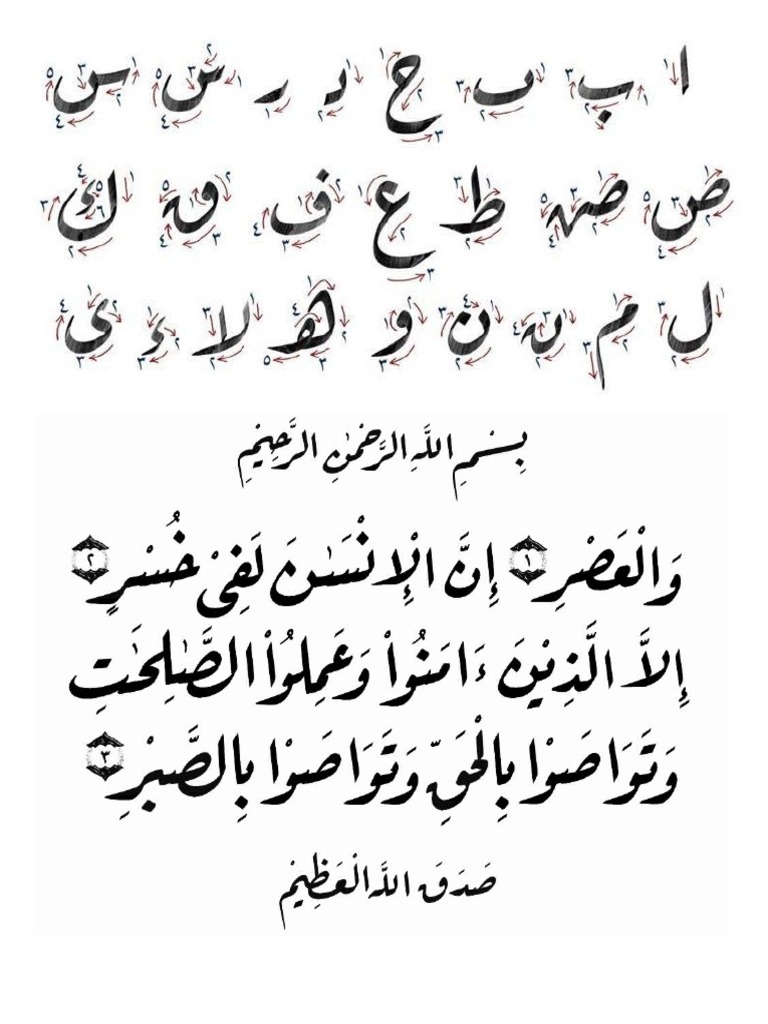 ا ب ٮ ح د ر س س
ص صـ ط ع ف ق ك
ل م ن ن و هـ لا ء ى
بِسْمِ اللَّهِ الرَّحْمٰنِ الرَّحِيْمِ
وَالْعَصْرِ ١ إِنَّ الْإِنْسَـٰنَ لَفِىْ خُسْرٍ ٢
إِلاَّ الَّذِيْنَ ءَامَنُواْ وَعَمِلُواْ الصَّـٰلِحَـٰتِ
وَتَوَاصَوْا بِالْحَقِّ وَتَوَاصَوْا بِالصَّبْرِ ٣
صَدَقَ اللَّهُ الْعَظِيْم